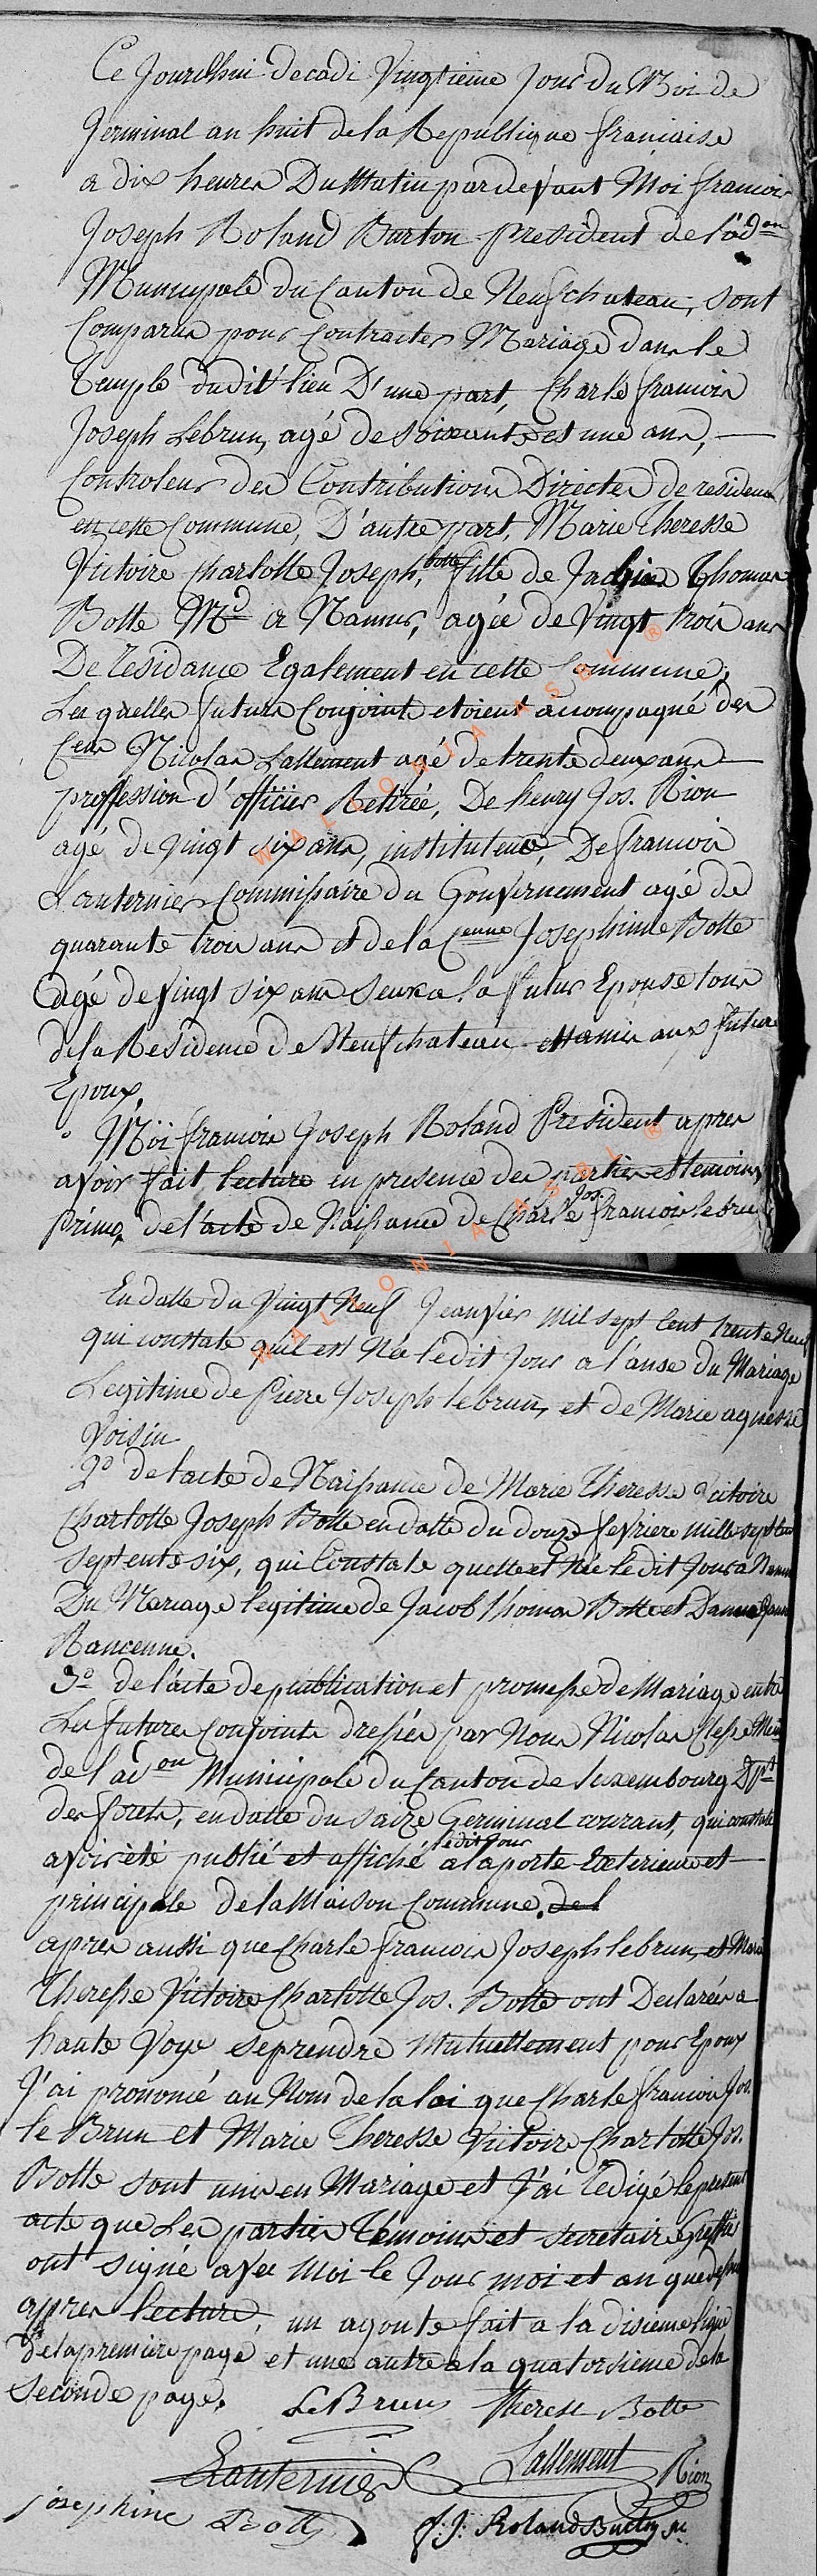 Ce Jourdhui decadi Vingtieme Jour du Moi de
Germinal an huit de la Republique francaise
a dix heures Du Matin pardevant Moi francois
Joseph Roland Burton president de l'adon
Municipale du Canton de Neufchateau, sont
Comparus pour Contracter Mariage dans le
Temple dudit lieu D'une part, Charle francois
Joseph Lebrun, agé de soixante et une ans,
Controleur des Contributions Directes de residence
en cette Commune, D'autre part, Marie Theresse
Victoire Charlotte Joseph, botte fille de Thomas
Botte Md a Namur, agée de Vingt trois ans
De residance Egalement en cette Commune,
Les quelles futurs Conjoints etoient accompagné des
Cens Nicolas Lallement agé de trente deux ans
proffession d'officier Retirée, De henry Jos. Rion
agé de Vingt six ans, instituteur, De francois
Lanternier Commissaire du Gouvernement agé de
quarante trois ans et de la Cenne Josephinne Botte
agé de vingt six ans seure a la futur Epouse tous
de la Residence de Neufchateau et amis aux futurs
Epoux,
Moi francois Joseph Roland President apres
avoir fait lecture en presence des parties et temoins
primo, de l'acte de Naissance de Charle Jos. francois lebrun
En datte du Vingt Neuf Jeanvier mil sept Cent trente Neuf
qui constate quil est Née ledit Jour a l'anse du Mariage
Legitime de Pierre Joseph lebrun, et de Marie agnesse
Voisin
2o de lacte de Naissance de Marie Theresse Victoire
Charlotte Joseph Botte en datte du douze fevriere mille sept cent
septente six, qui Constate quelle est Née ledit Jour a Namur
Du Mariage legitime de Jacob Thomas Botte et
Rancenne.
3o de l'acte de publication et promesse de Mariage entre
Les futures Conjoints dressées par Nous Nicolas
de l'adon Municipale du Canton de luxembourg Dpt
des forets, en datte du saize Germinal courant, qui constate
avoir été publié et affiché ledit Jour a la porte Exterieure et
principale de la Maison Commune. del
apres aussi que Charle francois Joseph lebrun, et Marie
Theresse Victoire Charlotte Jos. Botte ont Declarées a
haute Voye se prendre Mutuellement pour Epoux
J'ai prononcé au Nom de la loi que Charle francois Jos.
le Brun et Marie Theresse Victoire Charlotte Jos.
Botte sont unis en Mariage et J'ai redigé le present
acte que Les parties Temoins et secretaire Greffier
ont signé avec Moi le Jour moi et an que dessus
appres lecture, un agoute fait a la disieme ligne
de la premiere page et une autre a la quatorsieme de la
seconde page.
LeBrun Therese Botte
Lanternier Lallement Rion
josephine Botte f: J: Roland Burton pt.
WALLONIA ASBL ®
WALLONIA ASBL ®